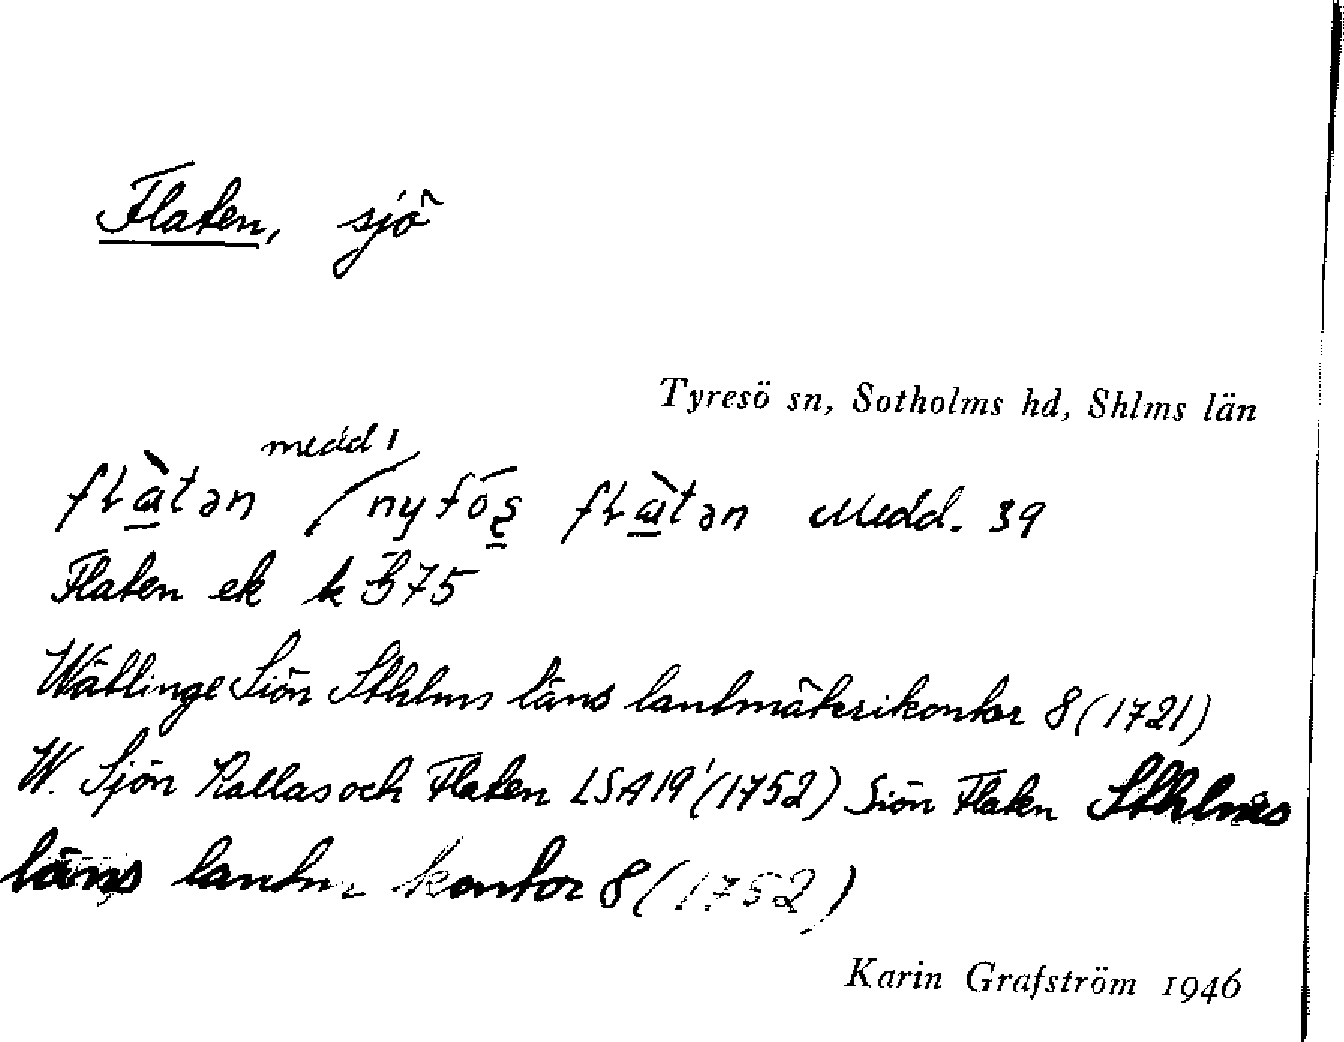 Flaten, sjö
Tyresö sn, Sotholms hd, Shlms län
medd 1
flàtən / ny fós flàtən Medd. 39
Flaten ek k B75
Wättlinge Siön Sthlms läns lantmäterikontor 8 (1721)
W. Sjön Kallas och Flaten LSA 19' (1752) Siön Flaten Sthlms
läns lantm. kontor 8 (1752)
Karin Grafström 1946